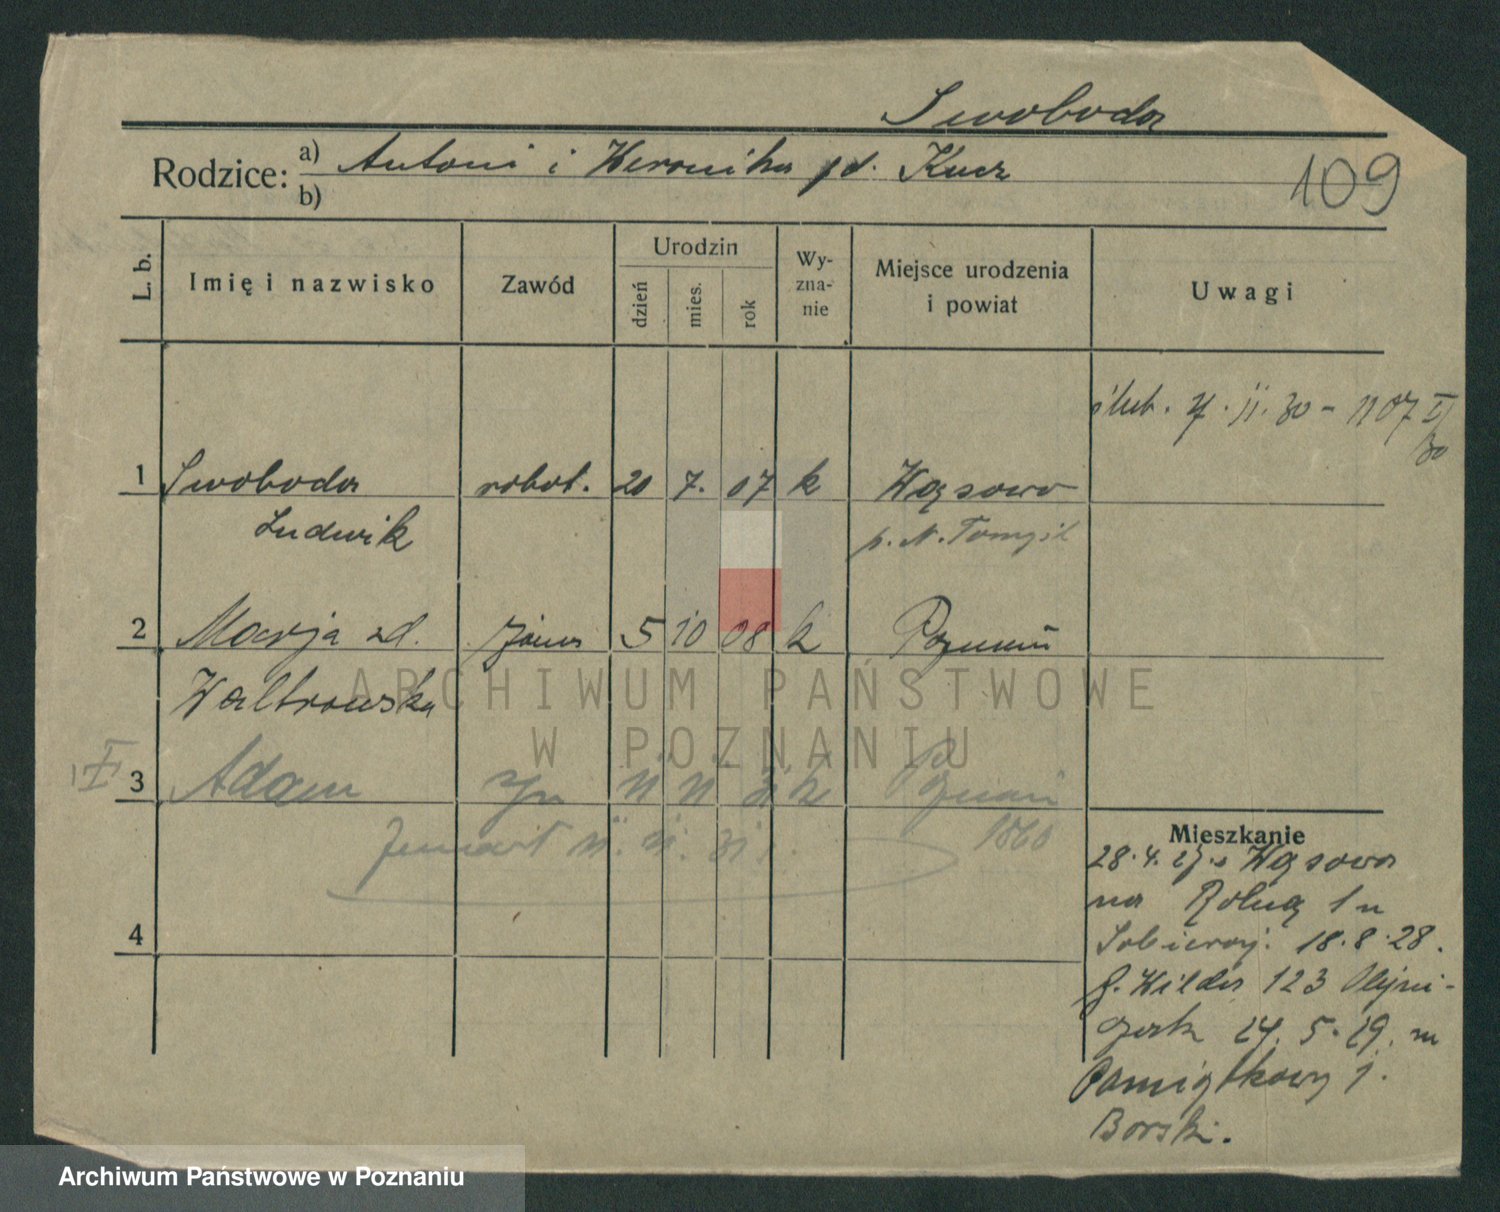 Swoboda
Rodzice: a) Antoni i Weronika zd. Kucz
b)
109
L. b.
Imię i nazwisko
Zawód
Urodzin
dzień
mies.
rok
Wy-
zna-
nie
Miejsce urodzenia
i powiat
Uwagi
ślub. 11. 30 - 1107 I/30
1 Swoboda robot. 20 7. 07 k Wąsowo
Ludwik p. N. Tomyśl
2 Marja zd. żona 5 10 08 k Poznań
Waltrowska
3 Adam syn 11 11 31 k Poznań
11. 11. 31
1860
4
Mieszkanie
28. 4. 27. z Wąsowa
na Rolną 1 u
18. 8. 28.
G. Wilda 123 Olejni-
czak 24. 5. 29. na
Pamiątkową 1.
Borski.
ARCHIWUM PAŃSTWOWE
W POZNANIU
Archiwum Państwowe w Poznaniu